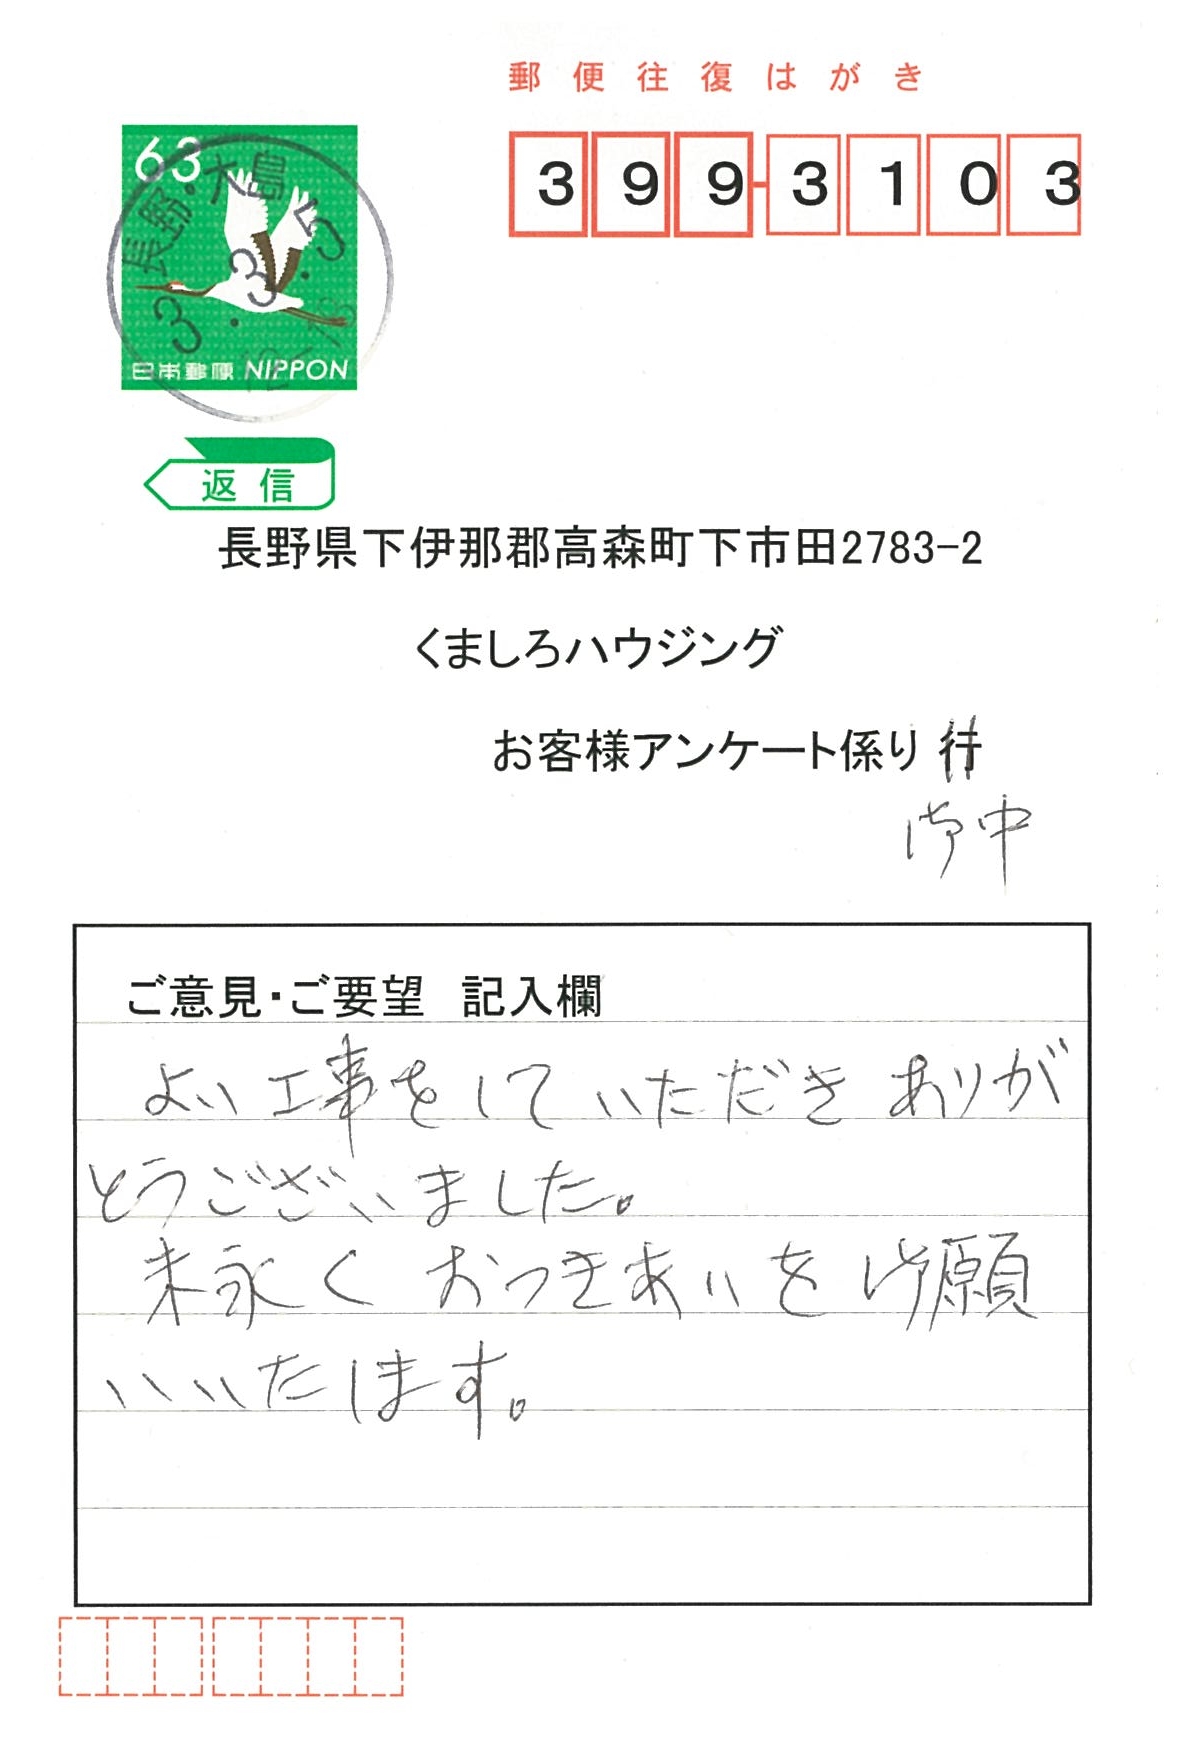 郵便往復はがき
63
長野・大島
3.3.5
12-18
日本郵便 NIPPON
399-3103
返信
長野県下伊那郡高森町下市田2783-2
くましろハウジング
お客様アンケート係り 行
御中
ご意見・ご要望 記入欄
よい工事をしていただきありが
とうございました。
末永くおつきあいを御願
いいたします。